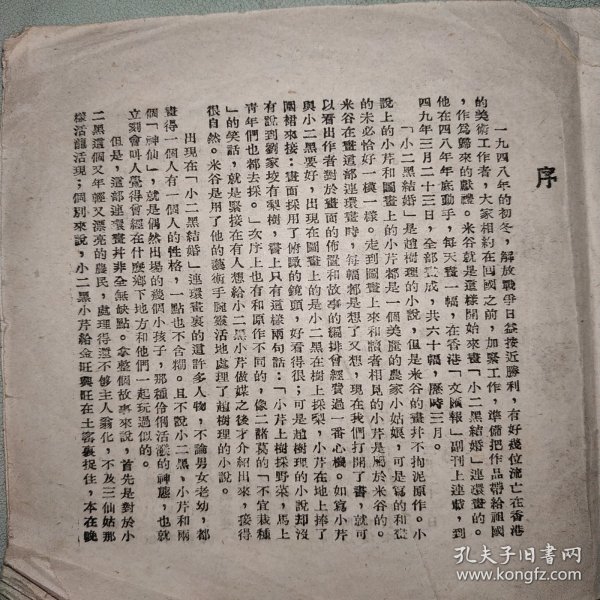 序
一九四八年的初冬，解放戰爭日益接近勝利，有好幾位流亡在香港
的美術工作者，大家相約在回國之前，加緊工作，準備把作品帶給祖國
，作爲歸來的獻禮。米谷就是這樣開始來畫「小二黑結婚」連環畫的。
他在四八年年底動手，每天畫一幅，在香港「文匯報」副刊上連載，到
四九年三月二十三日，全部畫成，共六十幅，歷時三月。
「小二黑結婚」是趙樹理的小說，但是米谷的畫并不拘泥原作。小
說上的小芹和圖畫上的小芹都是一個美麗的農家小姑娘，可是寫的和畫
的未必恰好一模一樣。走到圖畫上來和讀者相見的小芹是屬於米谷的。
米谷在畫這部連環畫時，每幅都是想了又想，現在我們打開了書，就可
以看出作者對於畫面的佈置和故事的編排曾經費過一番心機。如寫小芹
與小二黑要好，出現在圖畫上的是小二黑在樹上採梨，小芹在地上捧了
圍裙來接；畫面採用了俯瞰的鏡頭，好看得很；可是趙樹理的小說却沒
有說到劉家埈有梨樹，書上只有這樣兩句話：「小芹上樹採野菜，馬上
靑年們也都去採。」次序上也有和原作不同的，像二諸葛的「不宜栽種
」的笑話，就是緊接在有人想給小二黑小芹做媒之後才介紹出來，獲得
很自然。米谷是用了他的藝術手腕靈活地處理了趙樹理的小說。
出現在「小二黑結婚」連環畫裏的這許多人物，不論男女老幼，都
畫得一個人有一個人的性格，一點也不含糊。且不說小二黑，小芹和兩
個「神仙」，就是偶然出場的幾個小孩子，那種伶俐活潑的神態，也就
立刻會叫人覺得曾經在什麼鄉下地方和他們一起玩過似的。
但是，這部連環畫并非全無缺點。拿整個故事來說，首先是對於小
二黑這個又年輕又漂亮的農民，處理得還不够主人翁化，不及三仙姑那
樣活龍活現；個別來說，小二黑小芹給金旺興旺在土窰裏捉住，本在晚
孔夫子旧书网
www.kongfz.com